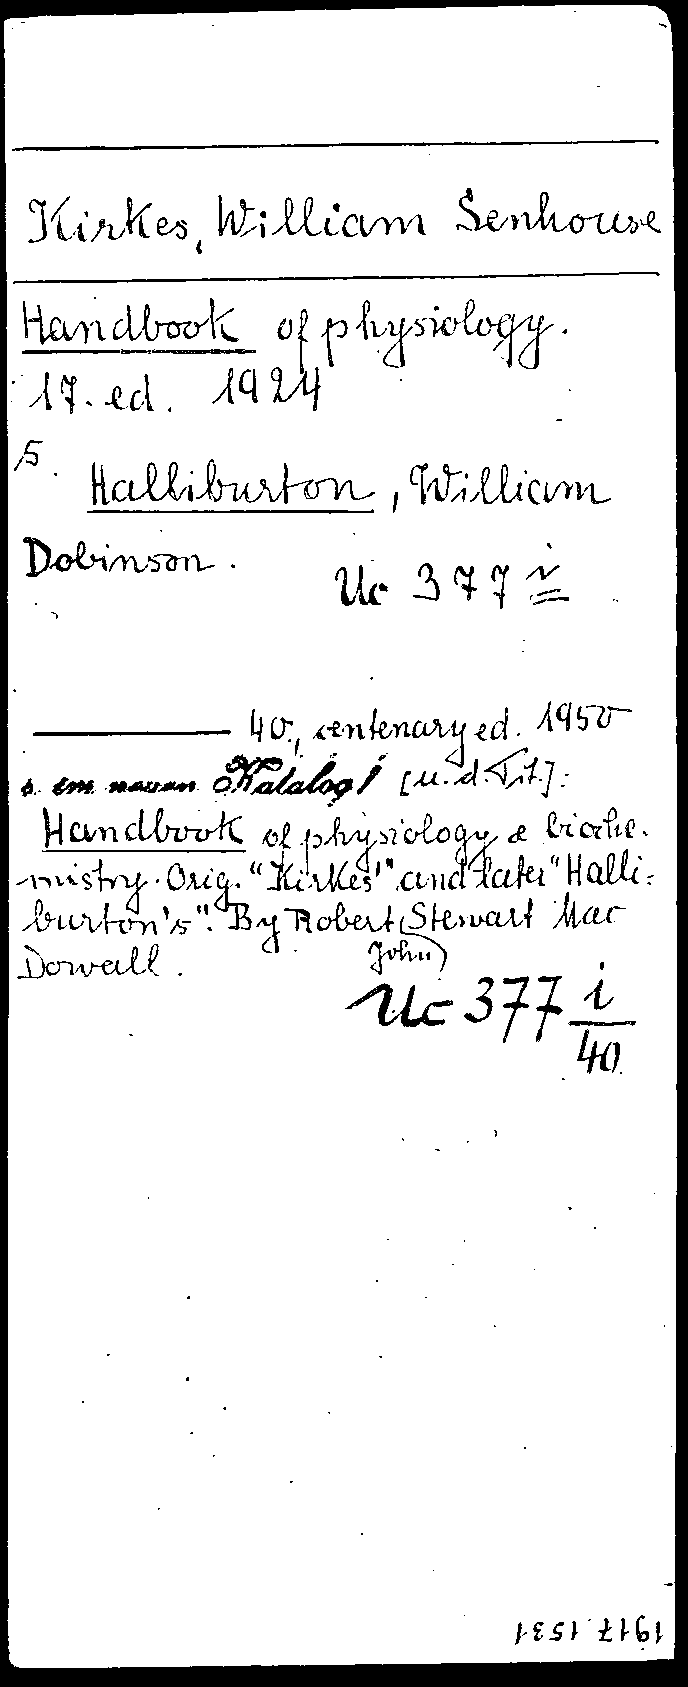 Kirkes, William Senhouse
Handbook of physiology.
17. ed. 1924
s.
Halliburton, William
Dobinson.
Uc 377 i
——— 40., centenary ed. 1950
s. im neuen Katalog! [u. d. Tit.]:
Handbook of physiology & bioche-
mistry. Orig. "Kirkes'" and later "Halli-
burton's". By Robert Stewart Mac
John
Dowall.
Uc 377 i/40
1917.1531